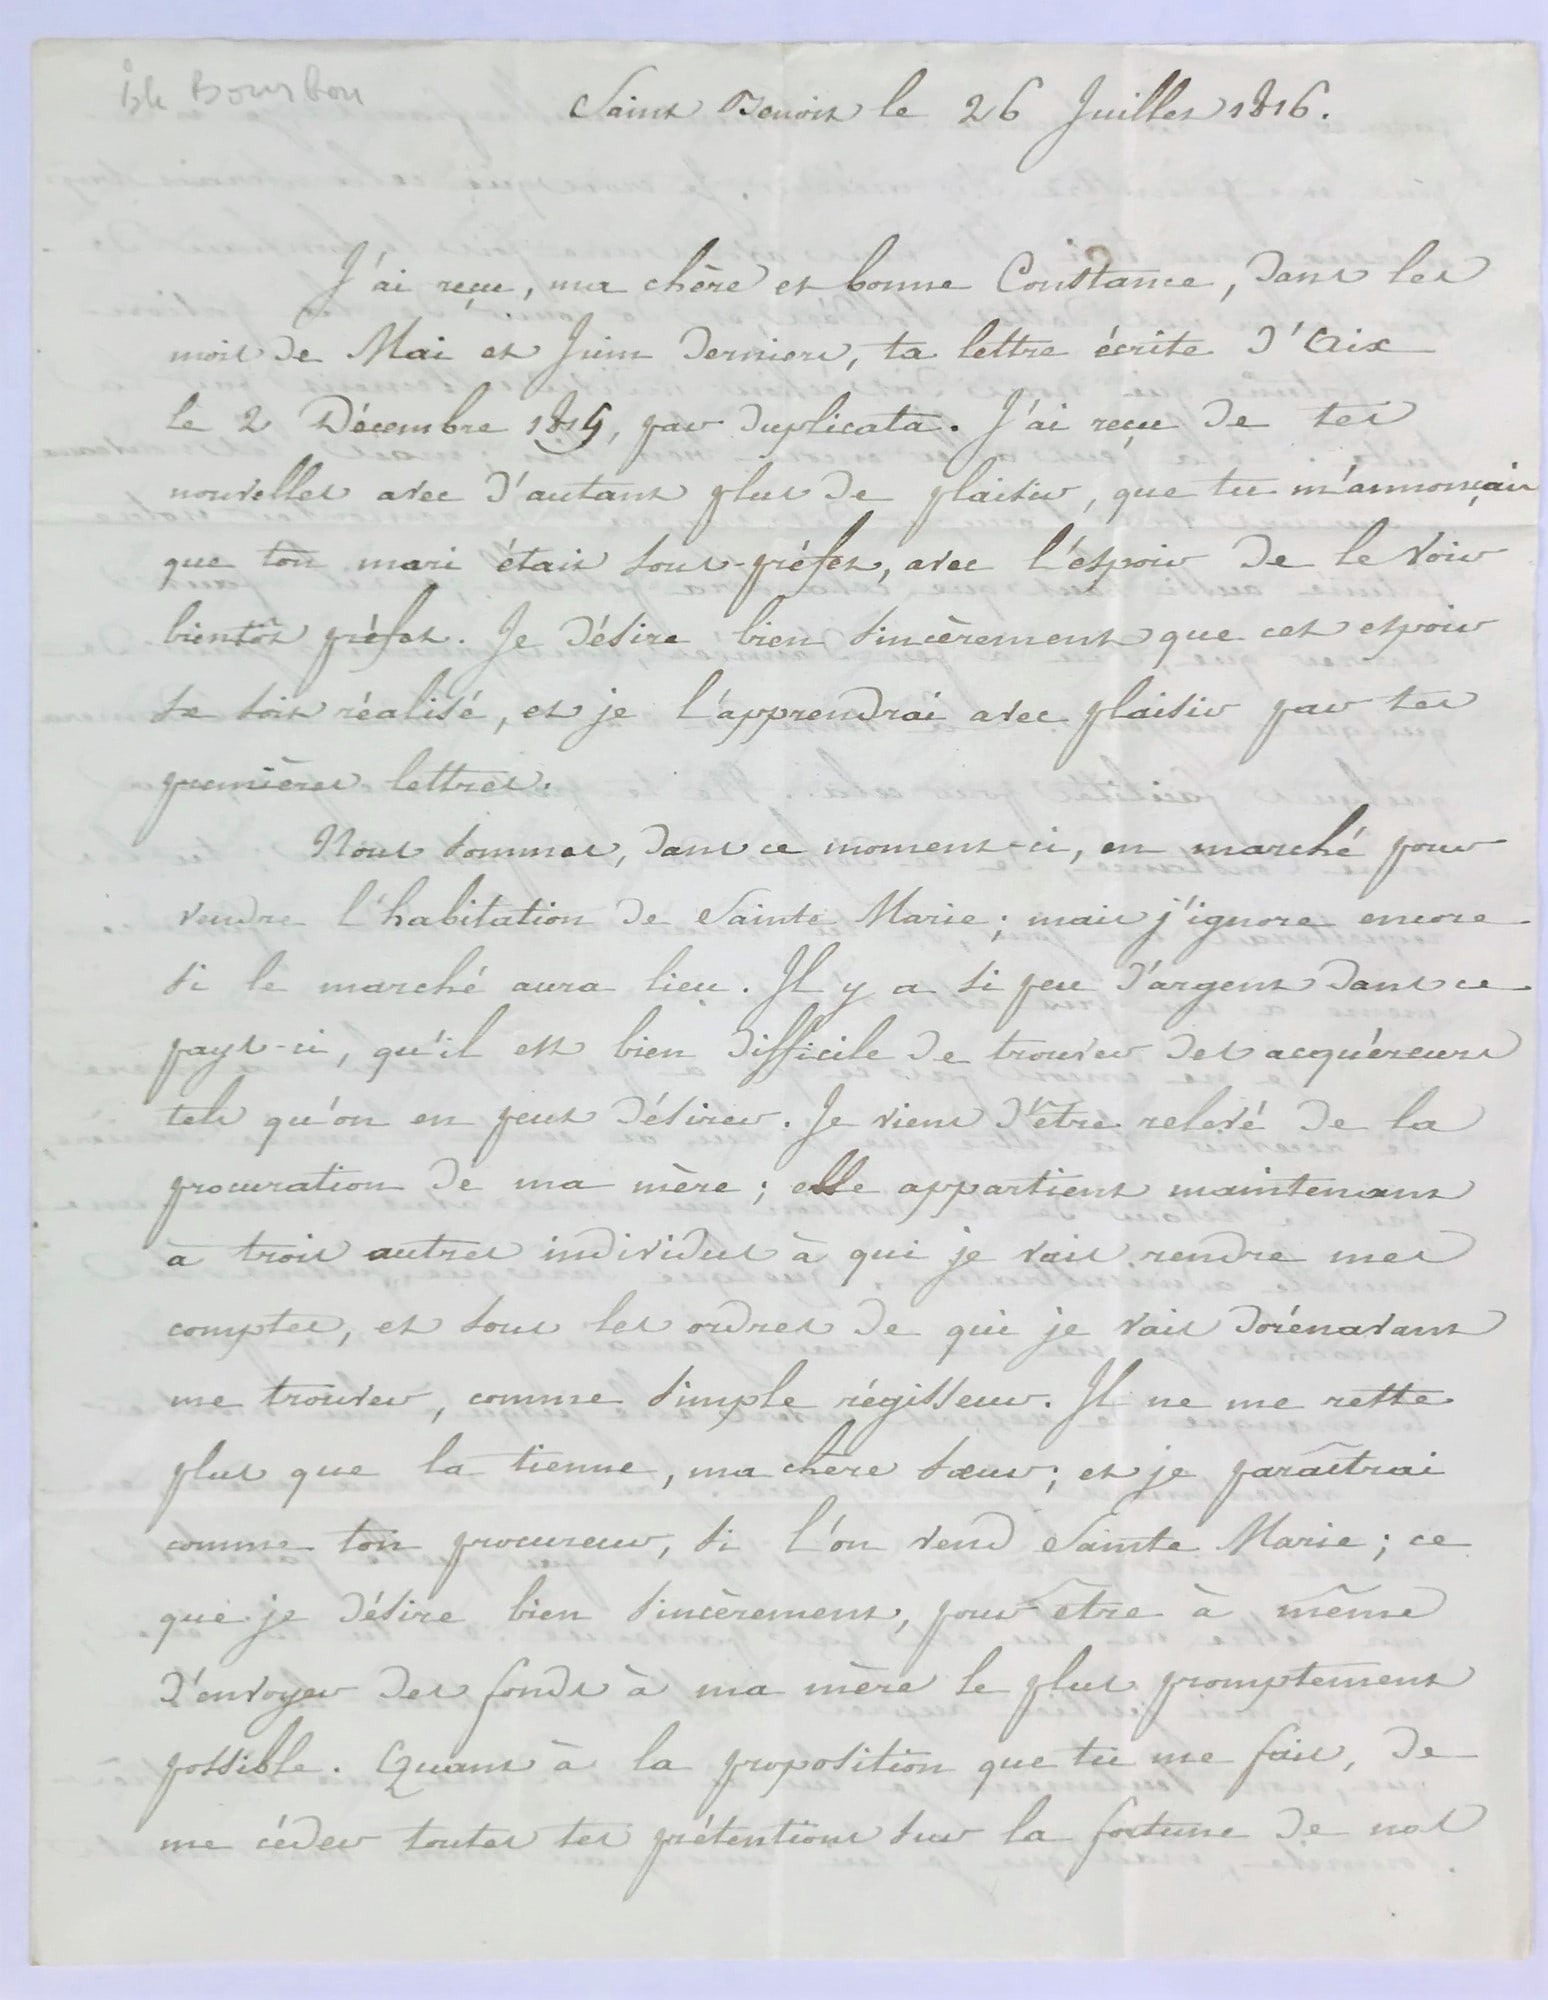 isle Bourbon
Saint Benoit le 26 Juillet 1816.
J'ai reçu, ma chère et bonne Constance, dans les
mois de Mai et Juin derniers, ta lettre écrite d'Aix
le 2 Décembre 1815, par duplicata. J'ai reçu de tes
nouvelles avec d'autant plus de plaisir, que tu m'annonçais
que ton mari était sous-préfet, avec l'espoir de le voir
bientôt préfet. Je désire bien sincèrement que cet espoir
se soit réalisé, et je l'apprendrai avec plaisir par tes
premières lettres.
Nous sommes, dans ce moment-ci, en marché pour
vendre l'habitation de Sainte Marie ; mais j'ignore encore
si le marché aura lieu. Il y a si peu d'argent dans ce
pays-ci, qu'il est bien difficile de trouver des acquéreurs
tels qu'on en peut désirer. Je viens d'être relevé de la
procuration de ma mère ; elle appartient maintenant
à trois autres individus à qui je vais rendre mes
comptes, et sous les ordres de qui je vais dorénavant
me trouver, comme simple régisseur. Il ne me reste
plus que la tienne, ma chère sœur ; et je paraîtrai
comme ton procureur, si l'on vend Sainte Marie ; ce
que je désire bien sincèrement, pour être à même
d'envoyer des fonds à ma mère le plus promptement
possible. Quant à la proposition que tu me fais, de
me céder toutes tes prétentions sur la fortune de nos